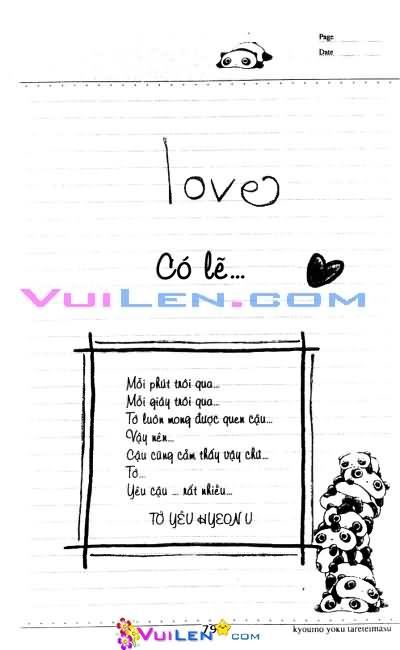 Page
Date
love
Có lẽ...
VUILEN.COM
Mỗi phút trôi qua...
Mỗi giây trôi qua...
Tớ luôn mong được quen cậu...
Vậy nên...
Cậu cũng cảm thấy vậy chứ...
Tớ...
Yêu cậu ... rất nhiều...
TỚ YÊU HYEON U
79
VUILEN.COM
kyoumo yoku tareteimasu